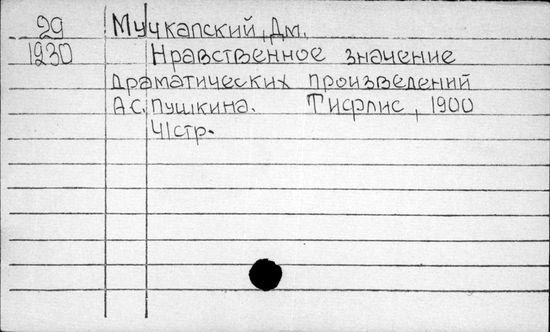 29 Мучкапский, Дм.
1230 Нравственное значение
драматических произведений
А.С. Пушкина. Тифлис, 1900
41стр.